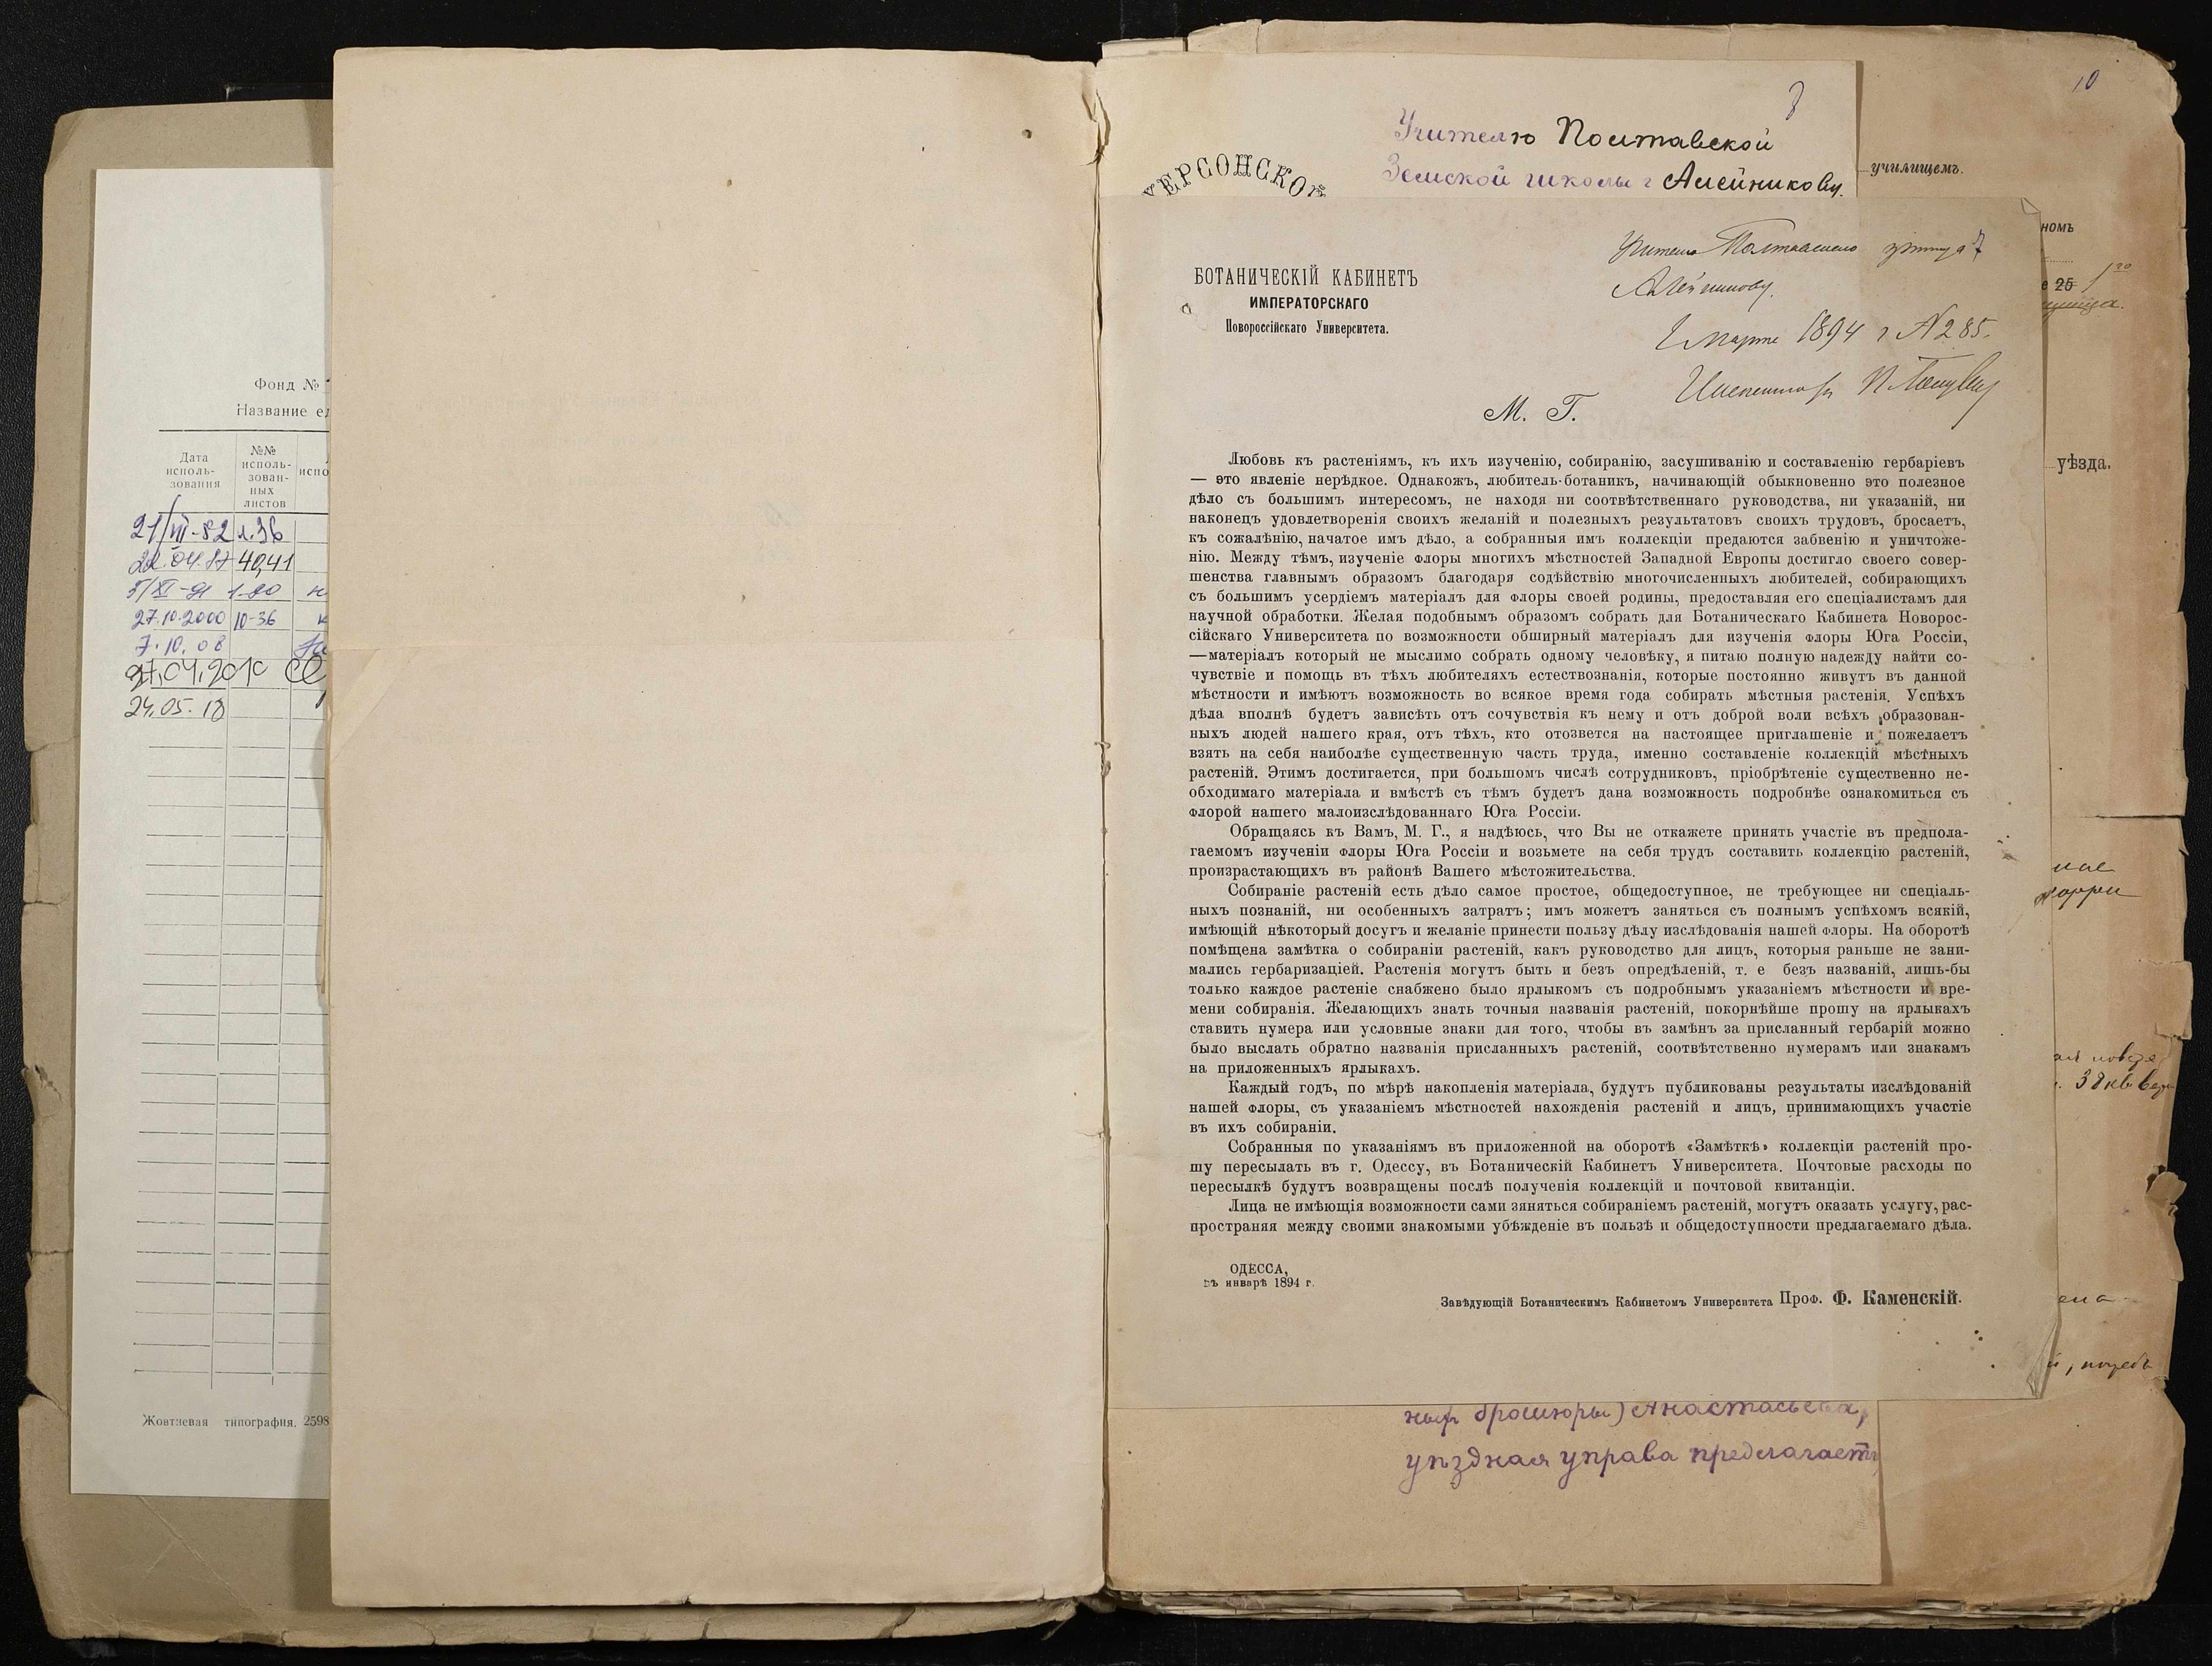 Фонд №
Название ед
Дата исполь- зования
№№ исполь- зован- ных листов
испо
21/VII-82 л.36
22.04.87 40,41
5/XI-91 1-20
27.10.2000 10-36
7.10.08
27.04.2010
24.05.18
Жовтневая типография. 2598
10
училищемъ.
номъ
е 25
уѣзда.
8
Учителю Полтавской
Земской школы г Алейникову.
ХЕРСОНСКОЙ
7
Алейникову.
2 марта 1894 г №285.
Инспекторъ
БОТАНИЧЕСКІЙ КАБИНЕТЪ
ИМПЕРАТОРСКАГО
Новороссійскаго Университета.
М. Г.
Любовь къ растеніямъ, къ ихъ изученію, собиранію, засушиванію и составленію гербаріевъ
— это явленіе нерѣдкое. Однакожъ, любитель-ботаникъ, начинающій обыкновенно это полезное
дѣло съ большимъ интересомъ, не находя ни соотвѣтственнаго руководства, ни указаній, ни
наконецъ удовлетворенія своихъ желаній и полезныхъ результатовъ своихъ трудовъ, бросаетъ,
къ сожалѣнію, начатое имъ дѣло, а собранныя имъ коллекціи предаются забвенію и уничтоже-
нію. Между тѣмъ, изученіе флоры многихъ мѣстностей Западной Европы достигло своего совер-
шенства главнымъ образомъ благодаря содѣйствію многочисленныхъ любителей, собирающихъ
съ большимъ усердіемъ матеріалъ для флоры своей родины, предоставляя его спеціалистамъ для
научной обработки. Желая подобнымъ образомъ собрать для Ботаническаго Кабинета Новорос-
сійскаго Университета по возможности обширный матеріалъ для изученія флоры Юга Россіи,
—матеріалъ который не мыслимо собрать одному человѣку, я питаю полную надежду найти со-
чувствіе и помощь въ тѣхъ любителяхъ естествознанія, которые постоянно живутъ въ данной
мѣстности и имѣютъ возможность во всякое время года собирать мѣстныя растенія. Успѣхъ
дѣла вполнѣ будетъ зависѣть отъ сочувствія къ нему и отъ доброй воли всѣхъ образован-
ныхъ людей нашего края, отъ тѣхъ, кто отозвется на настоящее приглашеніе и пожелаетъ
взять на себя наиболѣе существенную часть труда, именно составленіе коллекцій мѣстныхъ
растеній. Этимъ достигается, при большомъ числѣ сотрудниковъ, пріобрѣтеніе существенно не-
обходимаго матеріала и вмѣстѣ съ тѣмъ будетъ дана возможность подробнѣе ознакомиться съ
флорой нашего малоизслѣдованнаго Юга Россіи.
Обращаясь къ Вамъ, М. Г., я надѣюсь, что Вы не откажете принять участіе въ предпола-
гаемомъ изученіи флоры Юга Россіи и возьмете на себя трудъ составить коллекцію растеній,
произрастающихъ въ районѣ Вашего мѣстожительства.
Собираніе растеній есть дѣло самое простое, общедоступное, не требующее ни спеціаль-
ныхъ познаній, ни особенныхъ затратъ; имъ можетъ заняться съ полнымъ успѣхомъ всякій,
имѣющій нѣкоторый досугъ и желаніе принести пользу дѣлу изслѣдованія нашей флоры. На оборотѣ
помѣщена замѣтка о собираніи растеній, какъ руководство для лицъ, которыя раньше не зани-
мались гербаризаціей. Растенія могутъ быть и безъ опредѣленій, т. е безъ названій, лишь-бы
только каждое растеніе снабжено было ярлыкомъ съ подробнымъ указаніемъ мѣстности и вре-
мени собиранія. Желающихъ знать точныя названія растеній, покорнѣйше прошу на ярлыкахъ
ставить нумера или условные знаки для того, чтобы въ замѣнъ за присланный гербарій можно
было выслать обратно названія присланныхъ растеній, соотвѣтственно нумерамъ или знакамъ
на приложенныхъ ярлыкахъ.
Каждый годъ, по мѣрѣ накопленія матеріала, будутъ публикованы результаты изслѣдованій
нашей флоры, съ указаніемъ мѣстностей нахожденія растеній и лицъ, принимающихъ участіе
въ ихъ собираніи.
Собранныя по указаніямъ въ приложенной на оборотѣ «Замѣткѣ» коллекціи растеній про-
шу пересылать въ г. Одессу, въ Ботаническій Кабинетъ Университета. Почтовые расходы по
пересылкѣ будутъ возвращены послѣ полученія коллекцій и почтовой квитанціи.
Лица не имѣющія возможности сами зяняться собираніемъ растеній, могутъ оказать услугу, рас-
пространяя между своими знакомыми убѣжденіе въ пользѣ и общедоступности предлагаемаго дѣла.
ОДЕССА,
въ январѣ 1894 г.
Завѣдующій Ботаническимъ Кабинетомъ Университета Проф. Ф. Каменскій.
ныя брошюры) Анастасьева,
уѣздная управа предлагаетъ